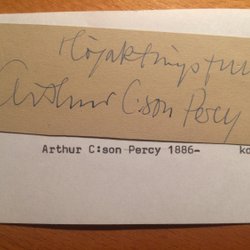 Högaktningsfull
Arthur C:son Percy
Arthur C:son Percy 1886- ko